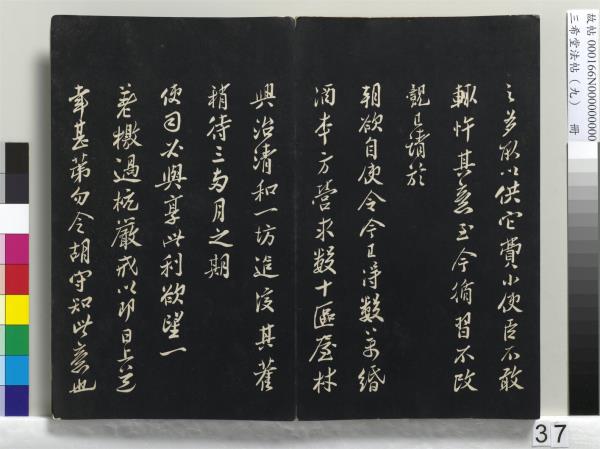 之多所以供它費小使臣不敢
輒忤其意至今循習不改
覬已請於
朝欲自使令今已得數萬緡
酒本方營求數十區屋材
與治清和一坊追復其舊
稍待三兩月之期
使司必與享此利欲望一
差檄過杭嚴戒以即日上道
幸甚第勿令胡守知此意也
故帖 000166N000000000
三希堂法帖（九） 冊
37